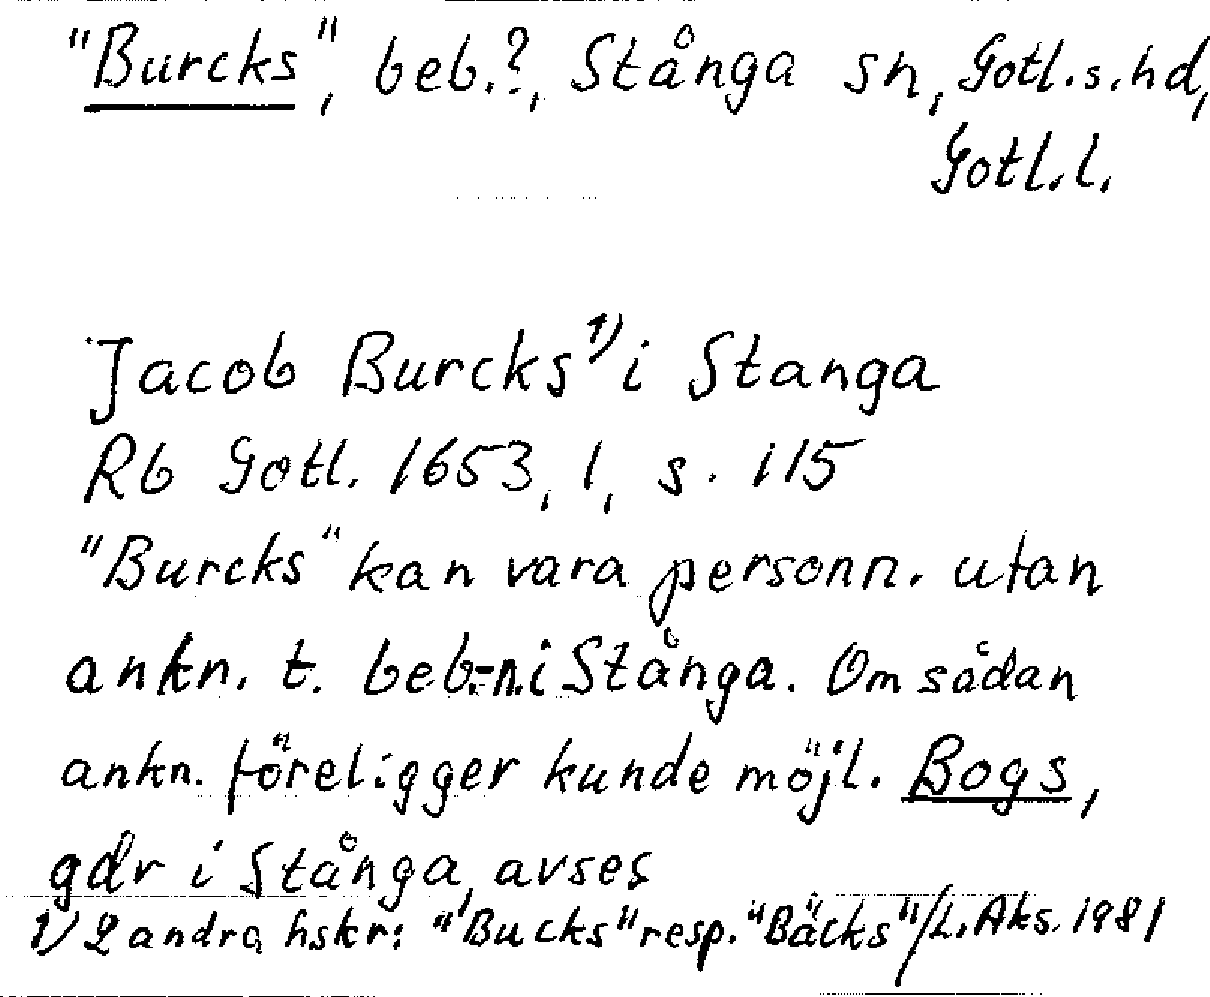 "Burcks", beb.?, Stånga sn, Gotl.s.hd,
Gotl.l.
Jacob Burcks¹⁾ i Stanga
Rb Gotl. 1653, 1, s. 115
"Burcks" kan vara personn. utan
ankn. t. beb-n. i Stånga. Om sådan
ankn. föreligger kunde möjl. Bogs,
gdr i Stånga, avses
1) 2 andra hskr: "Bucks" resp. "Bäcks" / L. Aks. 1981